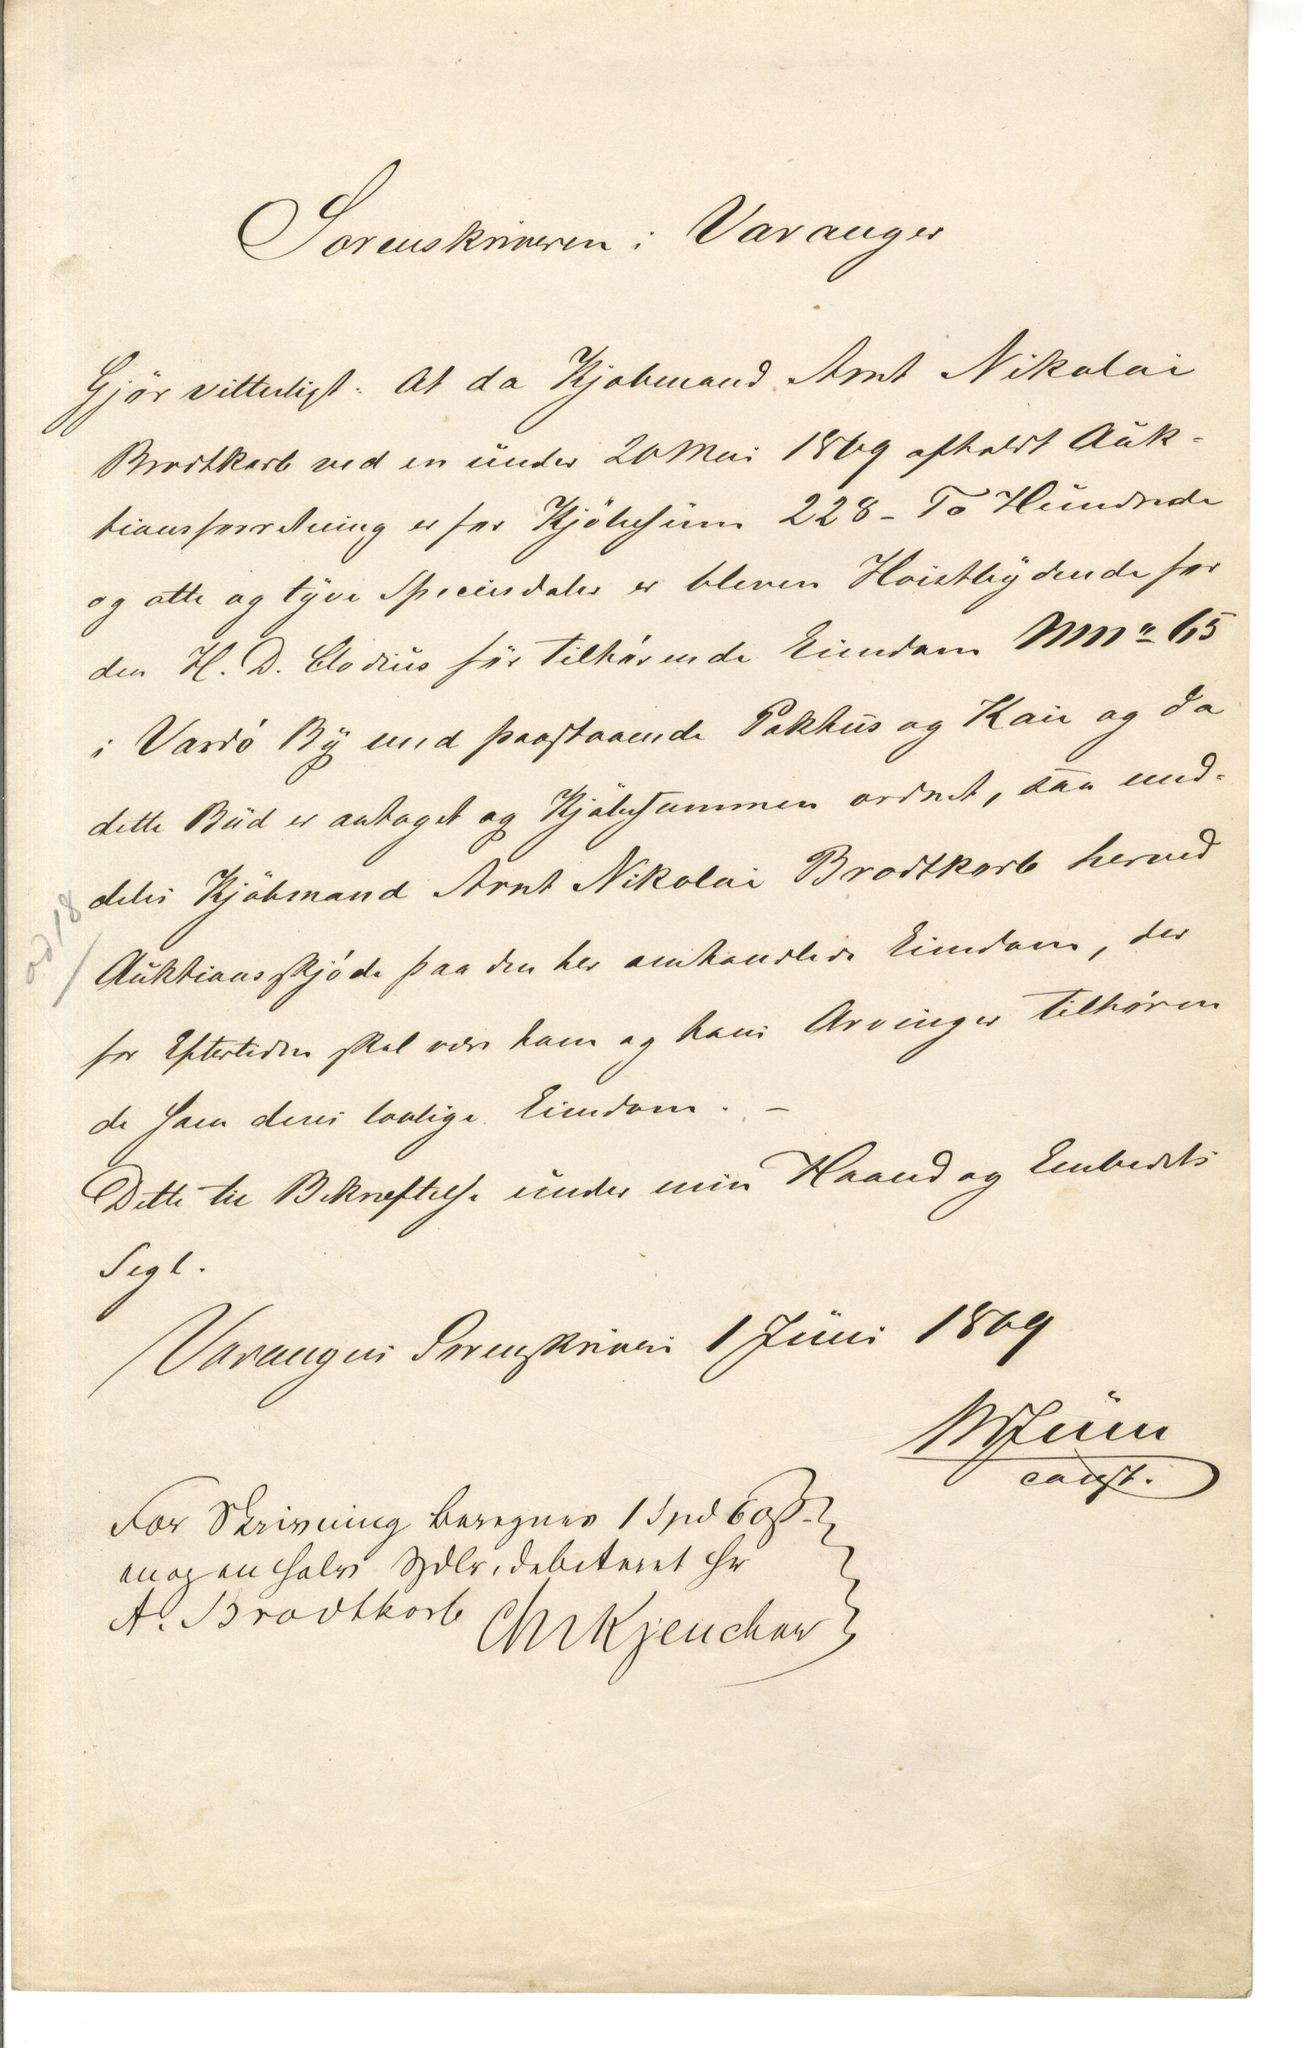 Sorenskriveren i Varanger
Gjør vitterligt: At da Kjøbmand Arnt Nikolai
Brodtkorb ved en under 20 Mai 1869 afholdt Auk-
tionsforretning er for Kjøbesum 228 - To Hundrede
og otte og tyve Speciesdaler er bleven Høistbydende for
den H. D. Clodius før tilhørende Eiendom M No 65
i Vardø By med paastaaende Pakhus og Kaie og da
dette Bud er antaget og Kjøbesummen ordnet, saa med-
deles Kjøbmand Arnt Nikolai Brodtkorb herved
Auktionsskjøde paa den her omhandlede Eiendom, der
for Eftertiden skal være ham og hans Arvinger tilhøren
de som deres lovlige Eiendom. -
Dette til Bekræftelse under min Haand og Embeds
Segl.
Varanger Sorenskriveri 1 Juni 1869
const.
For Skrivning beregnes 1 Spd 60 ß
en og en halv Spdlr. debiteret Hr
A. Brodtkorb
od 18